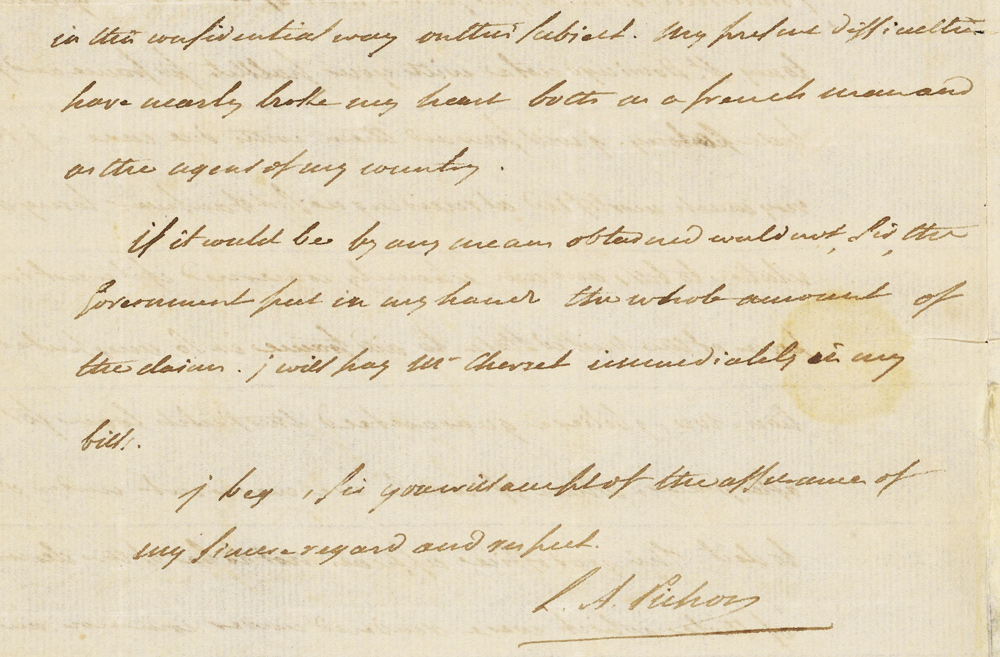 in this confidential way on this subject. My present difficulties
have nearly broke my heart both as a french man and
as the agent of my country.
if it would be by any means obtained would not, Sir, the
Government put in my hands the whole amount of
the claim. j will pay Mr Cherset immediately in my
bills.
j beg, Sir you will accept of the assurance of
my sincere regard and respect.
L. A. Pichon